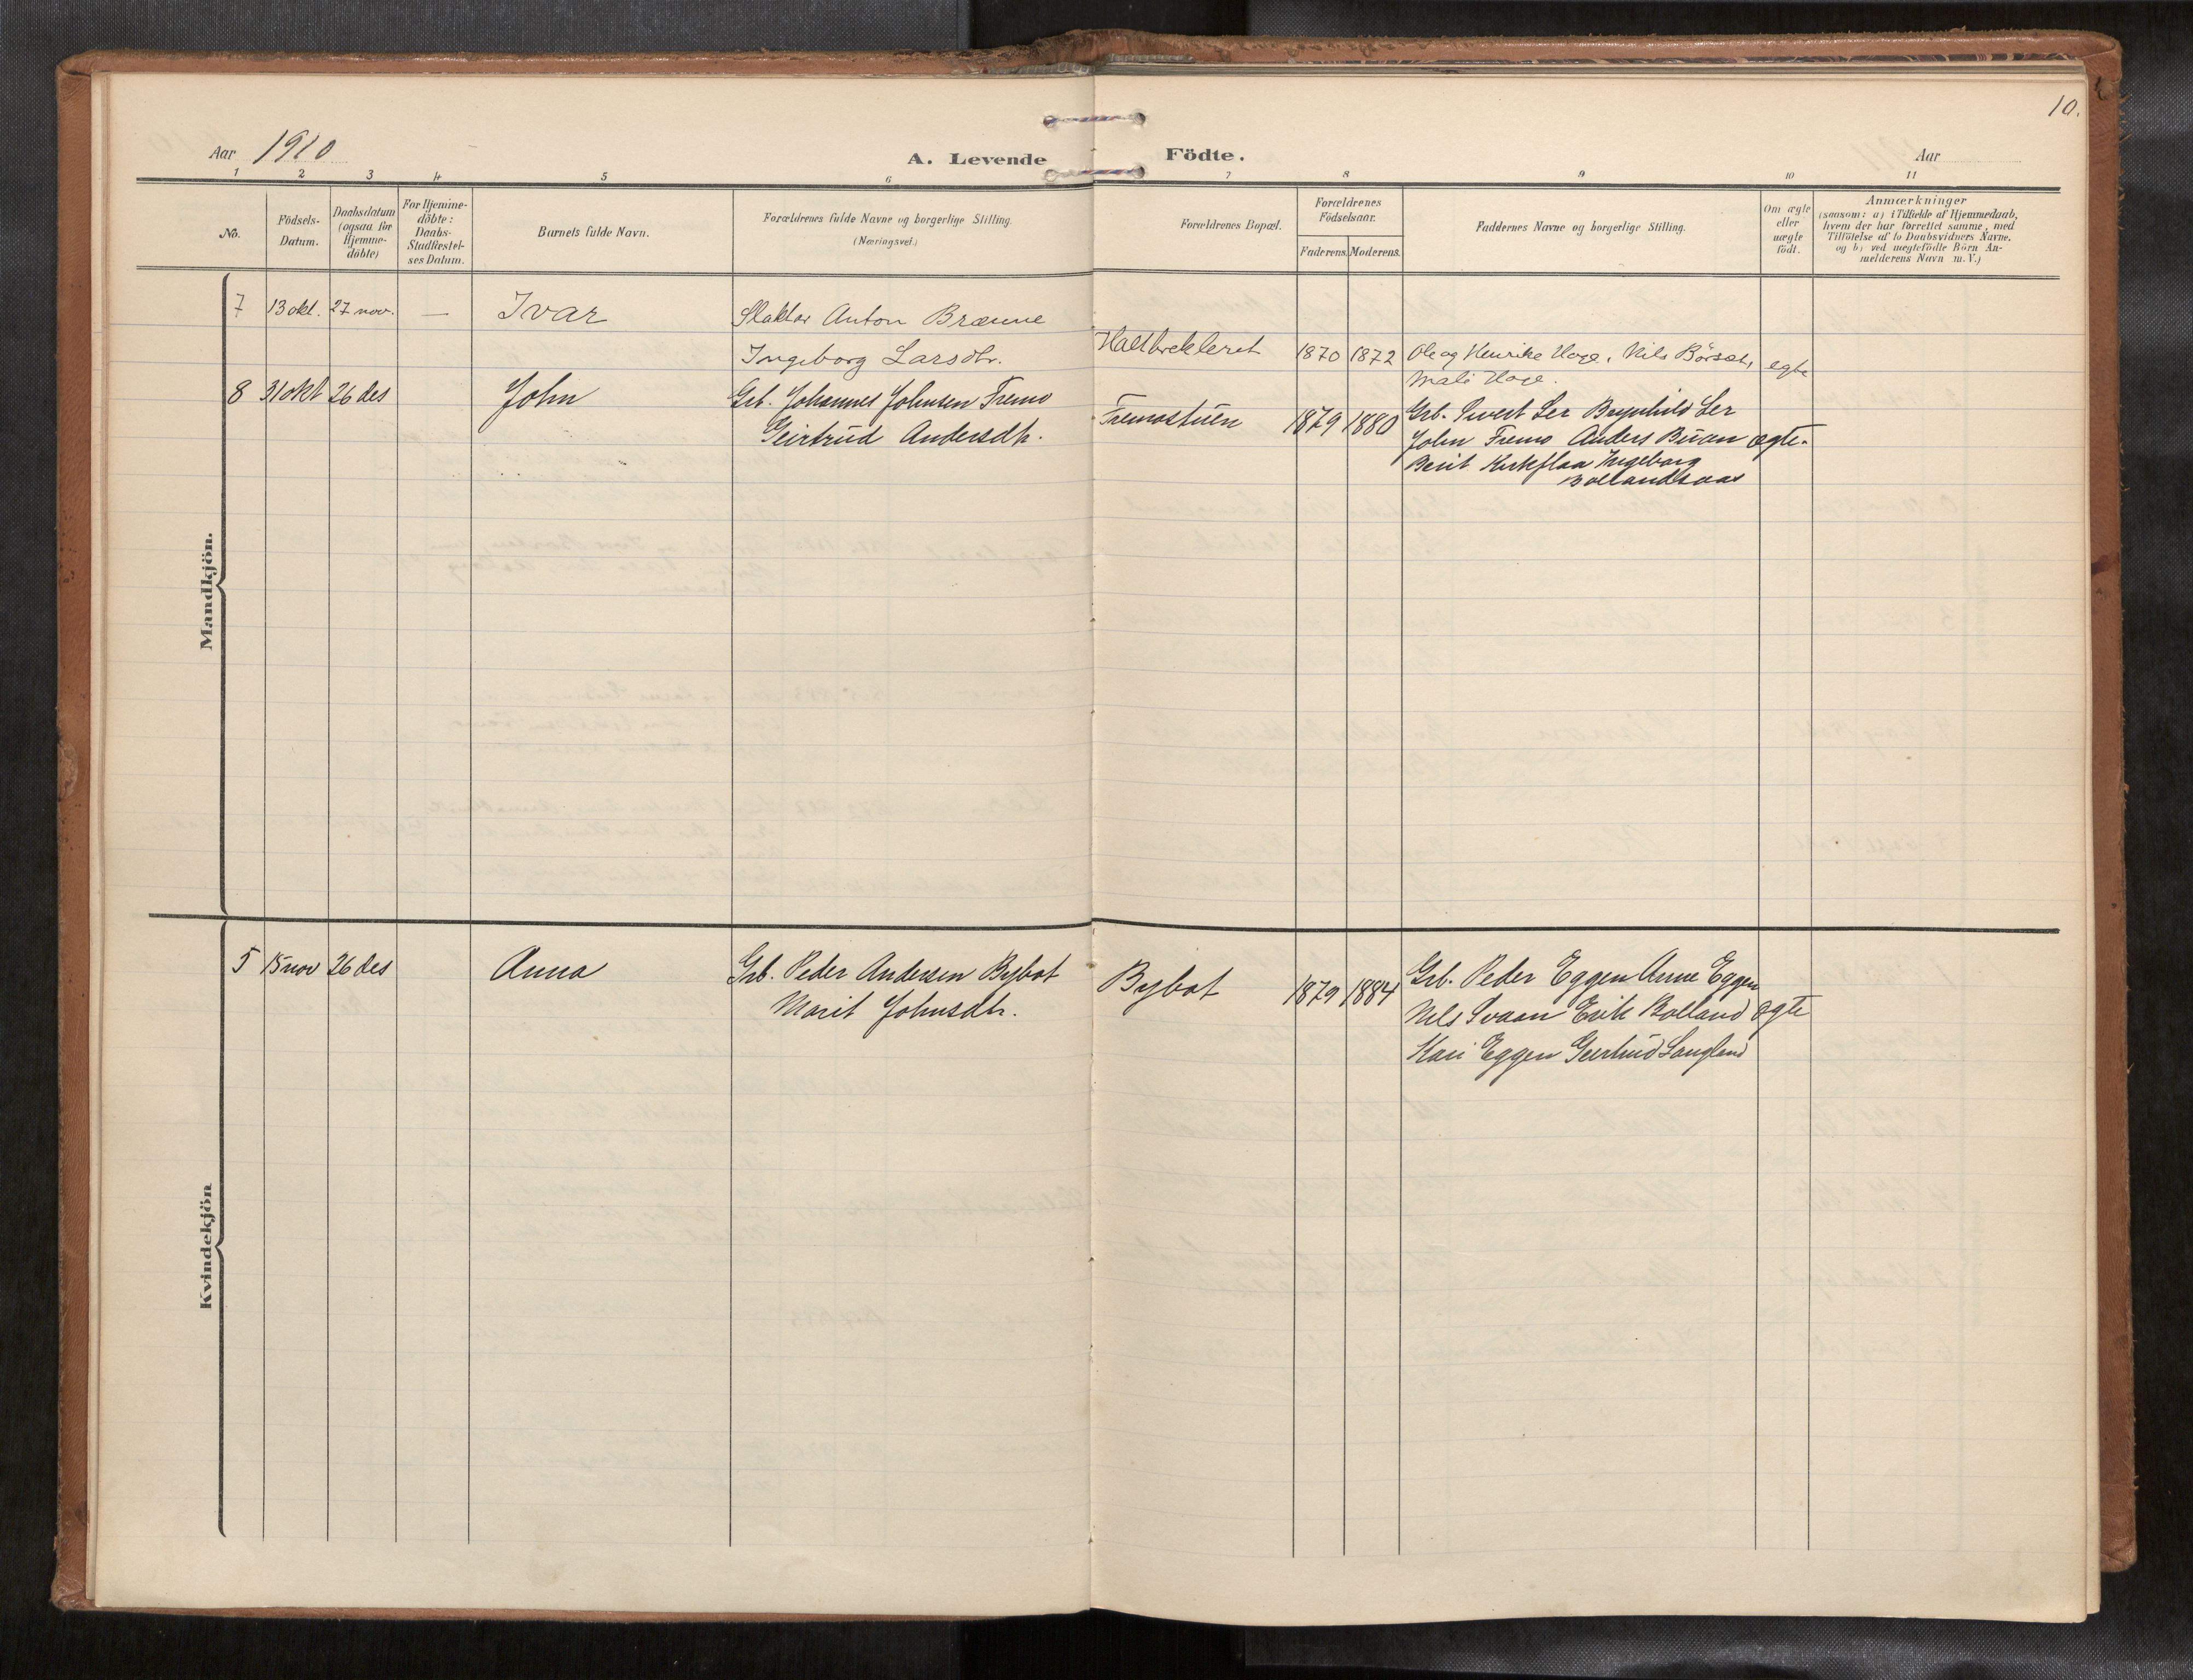 10.
Aar 1910
A. Levende Födte.
Aar
1 2 3 4 5 6 7 8 9 10 11
No.
Födsels-
Datum.
Daabsdatum
(ogsaa for
Hjemme-
döbte)
For Hjemme-
döbte:
Daabs-
Stadfæstel-
ses Datum.
Barnets fulde Navn.
Forældrenes fulde Navne og borgerlige Stilling.
(Næringsvei.)
Forældrenes Bopæl.
Forældrenes
Födselsaar.
Faderens. Moderens.
Faddernes Navne og borgerlige Stilling.
Om ægte
eller
uægte
födt.
Anmærkninger
(saasom: a) i Tilfælde af Hjemmedaab,
hvem der har forrettet samme, med
Tilföielse af to Daabsvidners Navne,
og b) ved uægtefödte Börn An-
melderens Navn m. V.)
Mandkjön.
7 13 okt. 27 nov. — Ivar Slakter Anton Brænne
Ingeborg Larsdtr. 1870 1872 Ole og Henrike Hage, Nils Börset, egte
Mali Hage.
8 31 okt 26 des John Grb. Johannes Johnsen Fremo
Geirtrud Andersdtr. Fremostuen 1879 1880 Grb. Sivert Ler Brynhild Ler
John Fremo Anders Buan ægte.
Berit Kirkflaa Ingeborg
Bollandsaas
Kvindekjön
5 15 nov 26 des Anna Grb. Peder Andersen Bybot
Marit Johnsdtr. Bybot 1879 1884 Grb. Peder Eggen Anne Eggen
Nils Svaan Erik Bolland ægte
Kari Eggen Geertrud Langland